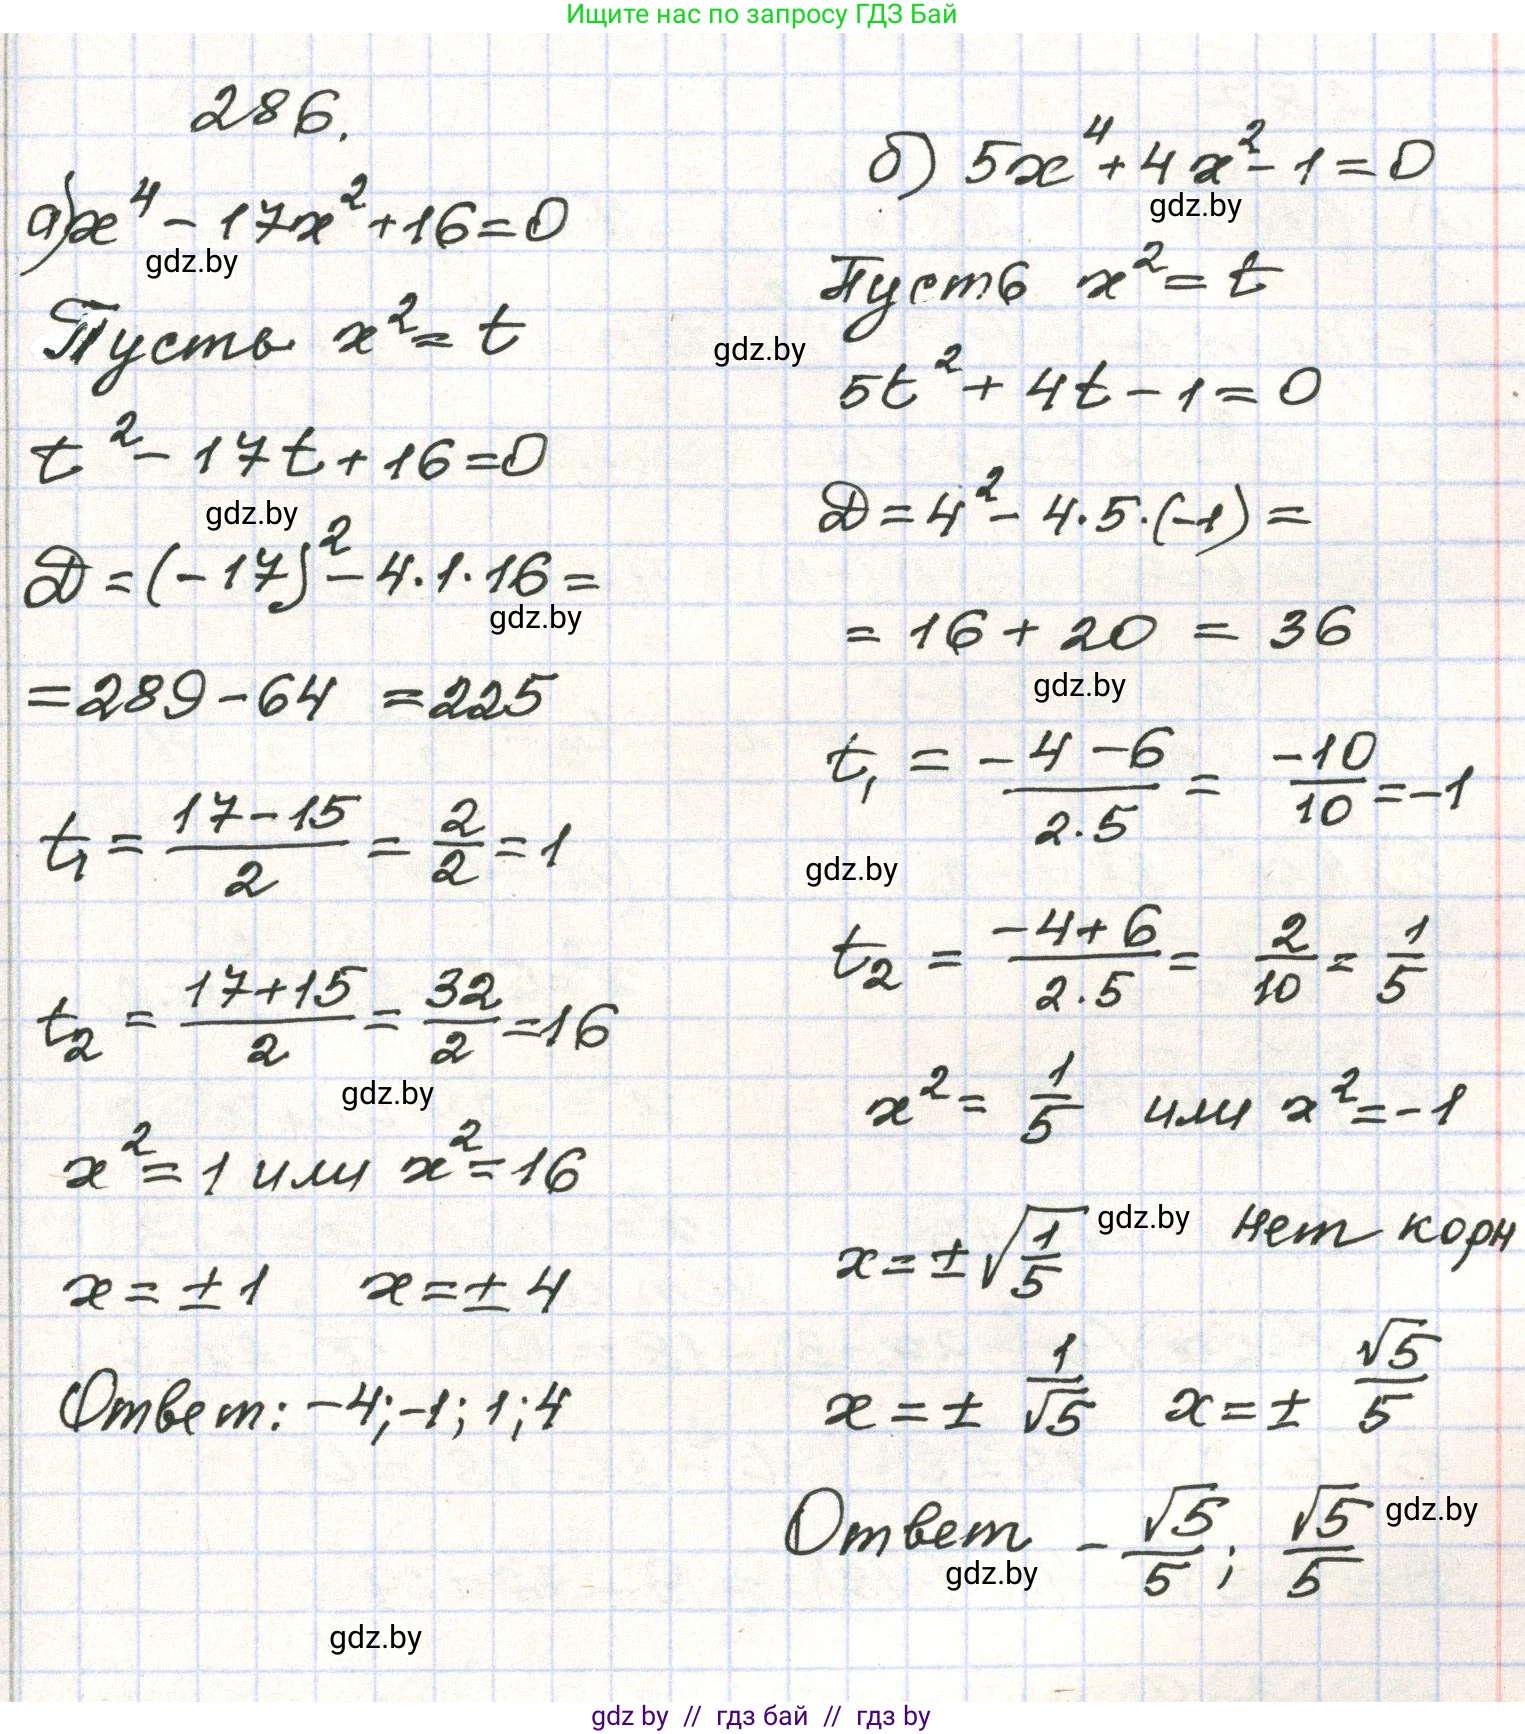 Ищите нас по запросу ГДЗ Бай
286.
а) x⁴ - 17x² + 16 = 0
gdz.by
Пусть x² = t
t² - 17t + 16 = 0
gdz.by
D = (-17)² - 4·1·16 =
gdz.by
= 289 - 64 = 225
t₁ = (17-15)/2 = 2/2 = 1
t₂ = (17+15)/2 = 32/2 = 16
gdz.by
x² = 1 или x² = 16
x = ±1 x = ±4
Ответ: -4; -1; 1; 4
gdz.by
б) 5x⁴ + 4x² - 1 = 0
gdz.by
Пусть x² = t
gdz.by
5t² + 4t - 1 = 0
D = 4² - 4·5·(-1) =
= 16 + 20 = 36
gdz.by
t₁ = (-4-6)/(2·5) = -10/10 = -1
gdz.by
t₂ = (-4+6)/(2·5) = 2/10 = 1/5
x² = 1/5 или x² = -1
x = ±√(1/5) gdz.by нет корн
x = ± 1/√5 x = ± √5/5
Ответ -√5/5; √5/5 gdz.by
gdz.by
gdz by // гдз бай // гдз by